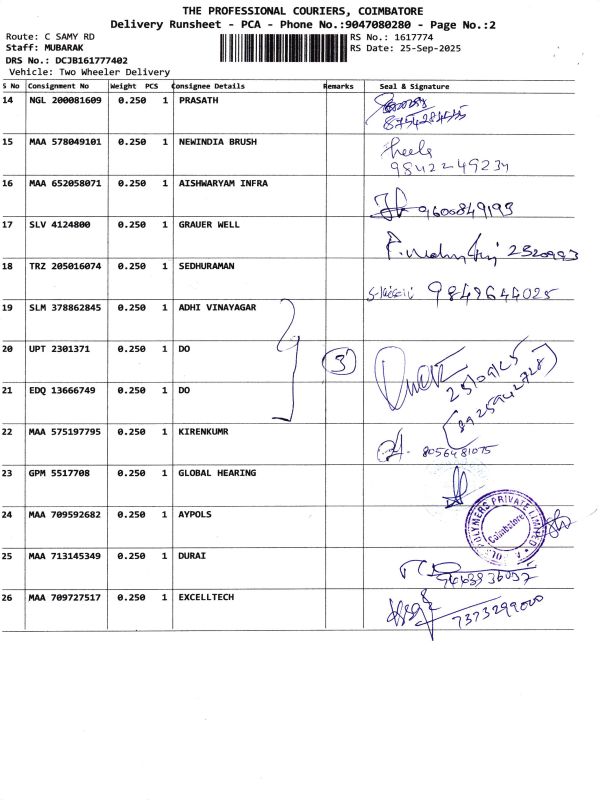 THE PROFESSIONAL COURIERS, COIMBATORE
Delivery Runsheet - PCA - Phone No.:9047080280 - Page No.:2
Route: C SAMY RD
RS No.: 1617774
Staff: MUBARAK
RS Date: 25-Sep-2025
DRS No.: DCJB161777402
Vehicle: Two Wheeler Delivery
S No Consignment No Weight PCS Consignee Details Remarks Seal & Signature
14 NGL 200081609 0.250 1 PRASATH
15 MAA 578049101 0.250 1 NEWINDIA BRUSH
9842249234
16 MAA 652058071 0.250 1 AISHWARYAM INFRA
9600849193
17 SLV 4124800 0.250 1 GRAUER WELL
2320993
18 TRZ 205016074 0.250 1 SEDHURAMAN
9849644025
19 SLM 378862845 0.250 1 ADHI VINAYAGAR
20 UPT 2301371 0.250 1 DO 3 25/09/25
21 EDQ 13666749 0.250 1 DO 8925942728
22 MAA 575197795 0.250 1 KIRENKUMR
8056481075
23 GPM 5517708 0.250 1 GLOBAL HEARING
24 MAA 709592682 0.250 1 AYPOLS
POLYMERS PRIVATE LIMITED
Coimbatore
25 MAA 713145349 0.250 1 DURAI
26 MAA 709727517 0.250 1 EXCELLTECH
7373299000